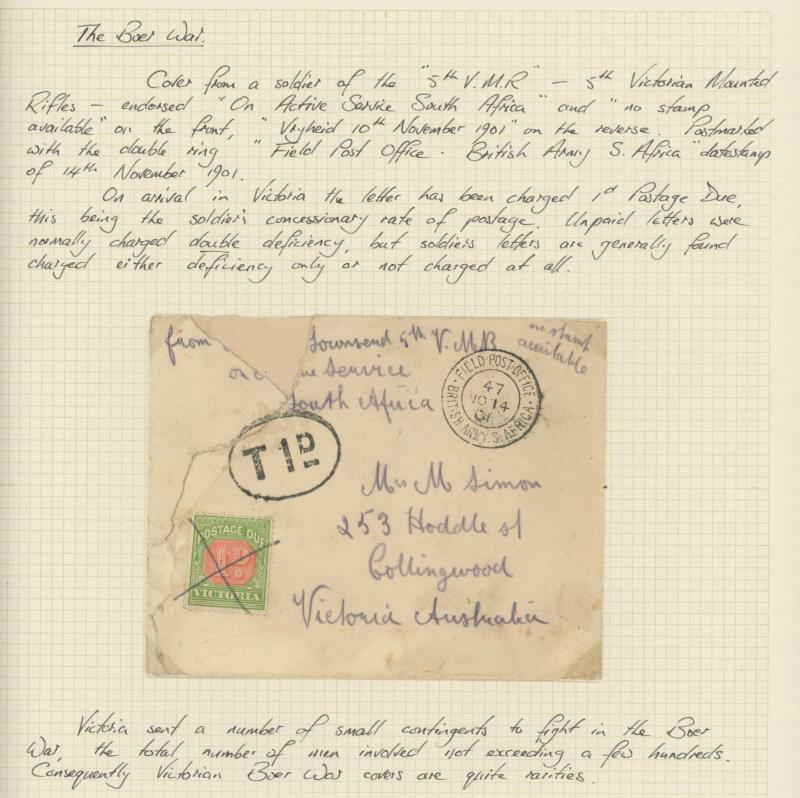 The Boer War.
Cover from a soldier of the "5th V.M.R" – 5th Victorian Mounted
Rifles – endorsed "On Active Service South Africa" and "no stamp
available" on the front, "Vryheid 10th November 1901" on the reverse. Postmarked
with the double ring "Field Post Office · British Army S. Africa" datestamp
of 14th November 1901.
On arrival in Victoria the letter has been charged 1d Postage Due,
this being the soldier's concessionary rate of postage. Unpaid letters were
normally charged double deficiency, but soldiers letters are generally found
charged either deficiency only or not charged at all.
from Townsend 5th V.M.R
no stamp
available
on Service
South Africa
FIELD·POST·OFFICE·
47
NO 14
01
BRITISH·ARMY.S.AFRICA·
T 1D
Mrs M Simon
253 Hoddle st
Collingwood
Victoria Australia
POSTAGE DUE
1D.
VICTORIA
Victoria sent a number of small contingents to fight in the Boer
War, the total number of men involved not exceeding a few hundreds.
Consequently Victorian Boer War covers are quite rarities.